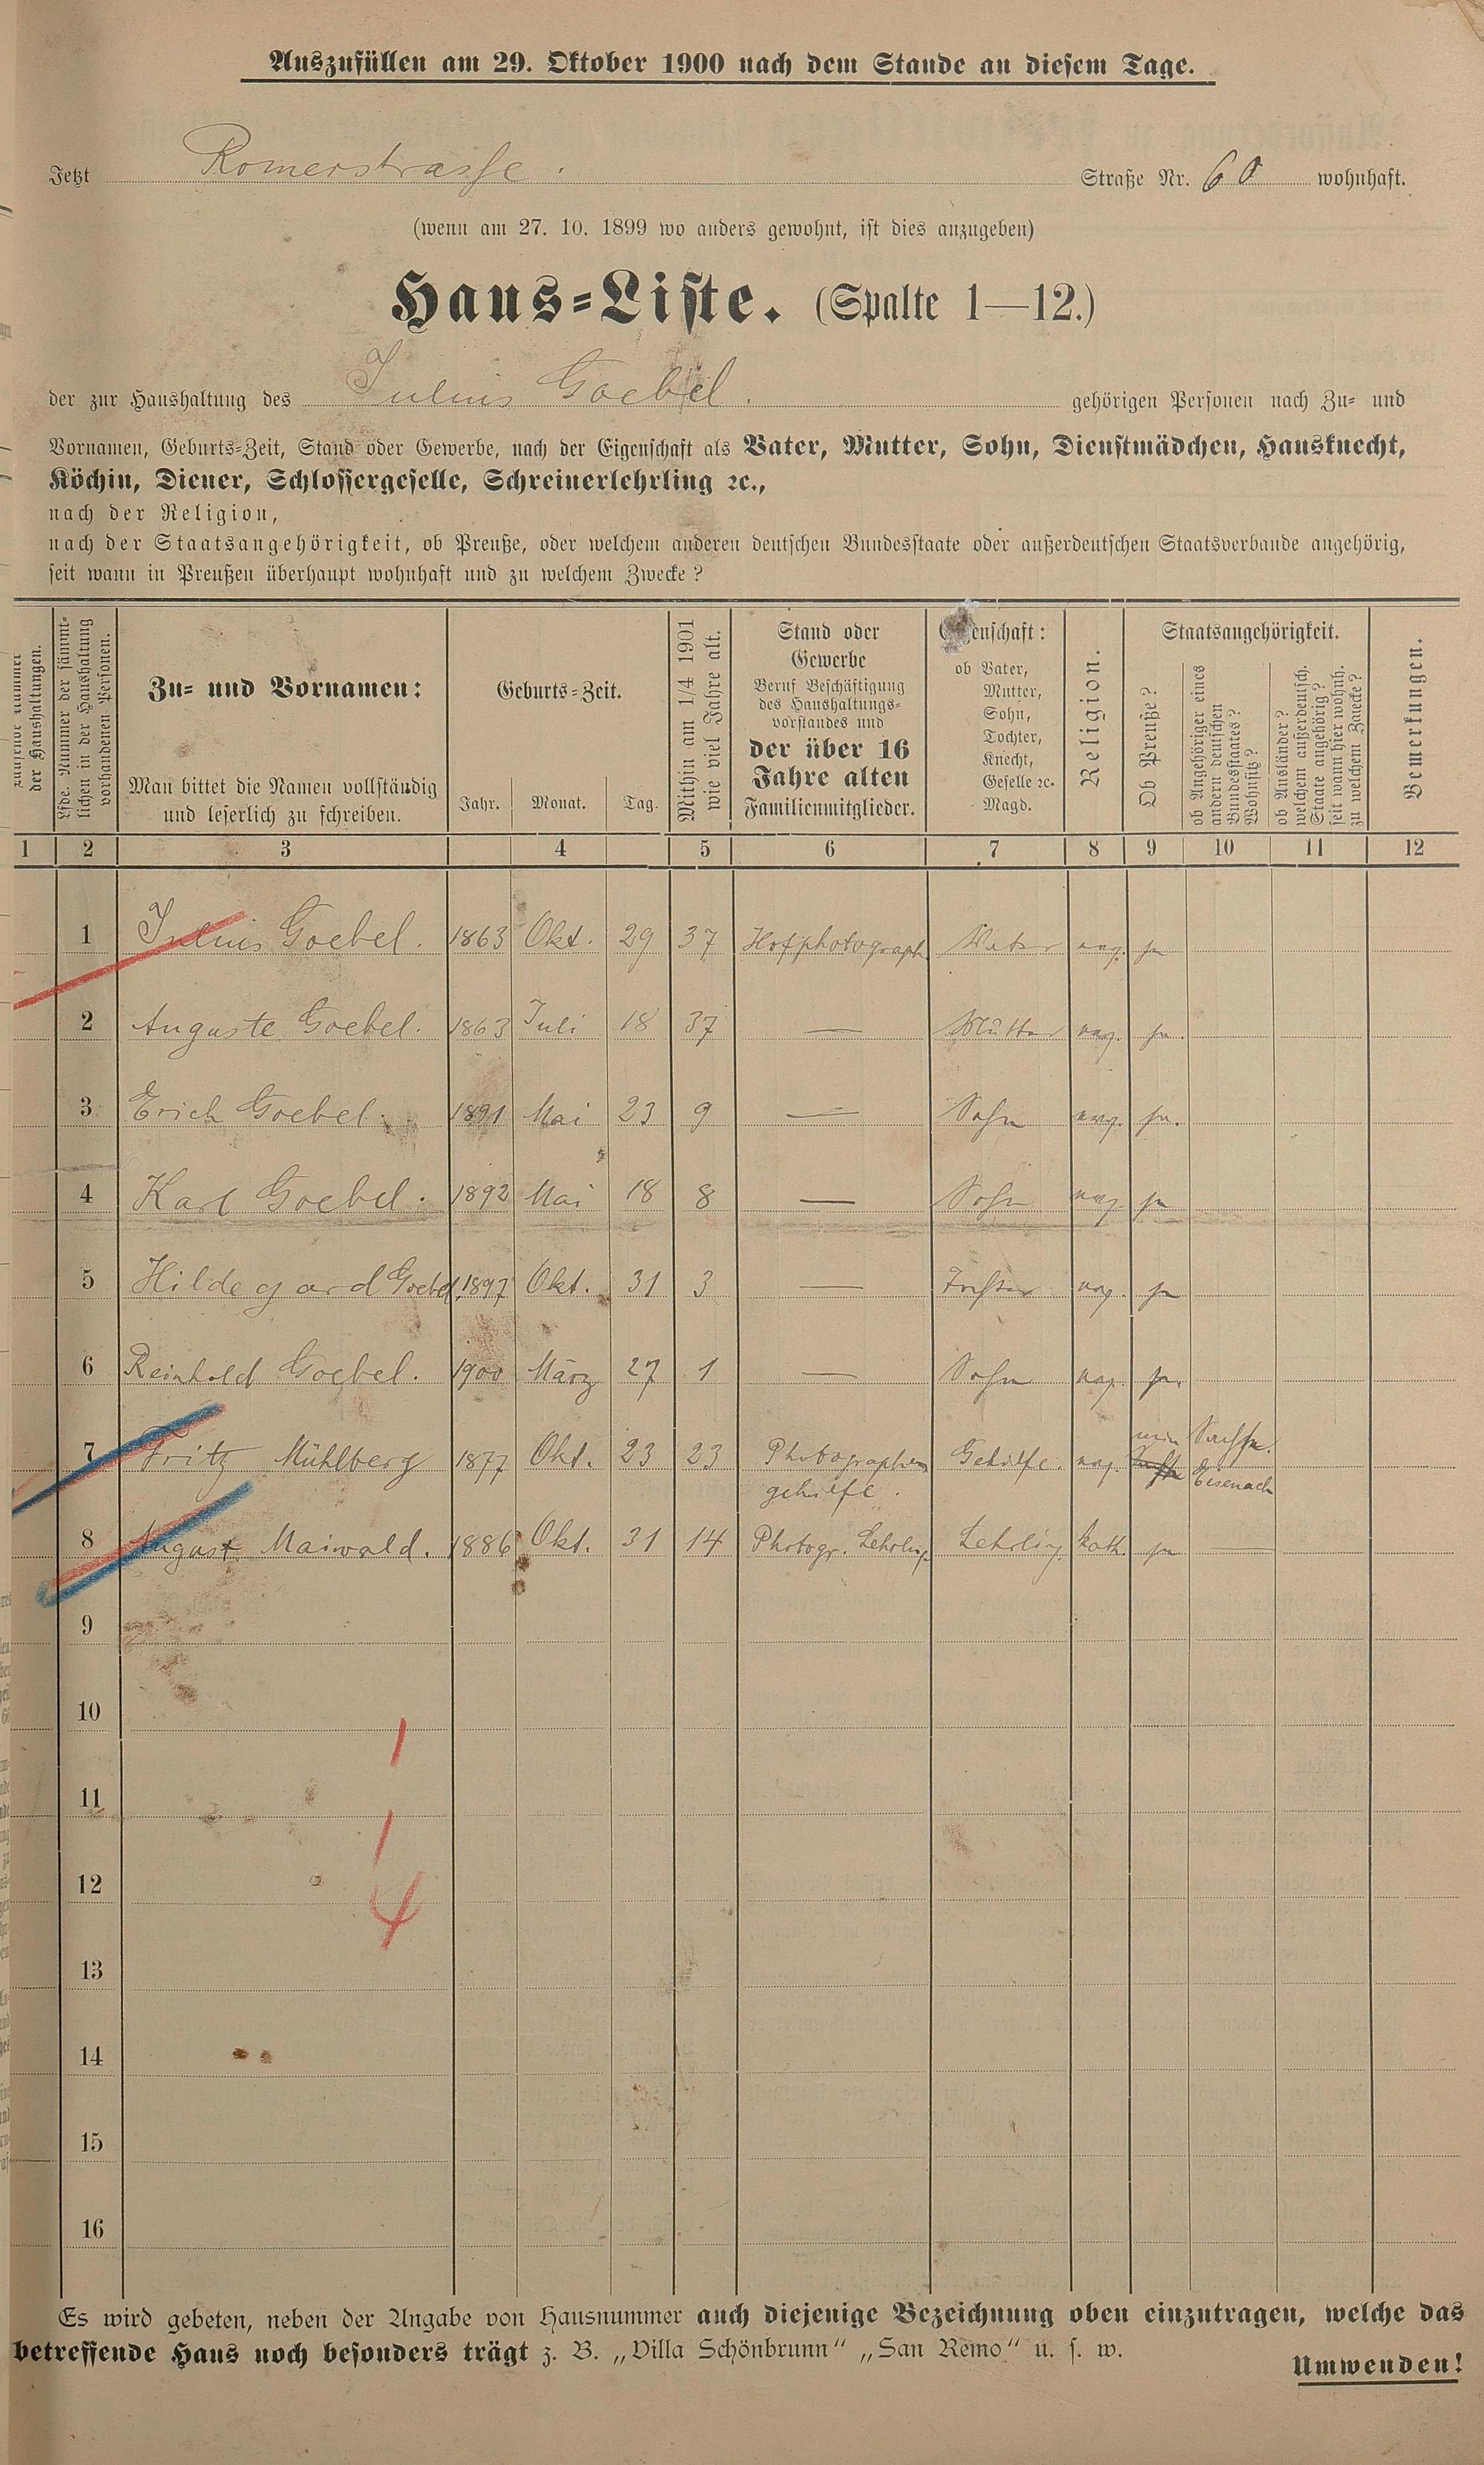 Auszufüllen am 29. Oktober 1900 nach dem Stande an diesem Tage.
Jetzt Romerstrasse. Straße Nr. 60 wohnhaft.
(wenn am 27. 10. 1899 wo anders gewohnt, ist dies anzugeben)
Haus-Liste. (Spalte 1—12.)
der zur Haushaltung des Julius Goebel. gehörigen Personen nach Zu- und
Vornamen, Geburts-Zeit, Stand oder Gewerbe, nach der Eigenschaft als Vater, Mutter, Sohn, Dienstmädchen, Hausknecht,
Köchin, Diener, Schlossergeselle, Schreinerlehrling ꝛc.,
nach der Religion,
nach der Staatsangehörigkeit, ob Preuße, oder welchem anderen deutschen Bundesstaate oder außerdeutschen Staatsverbande angehörig,
seit wann in Preußen überhaupt wohnhaft und zu welchem Zwecke?
der Haushaltungen.
Lfde. Nummer der sämmt-
lichen in der Haushaltung
vorhandenen Personen.
Zu- und Vornamen:
Man bittet die Namen vollständig
und leserlich zu schreiben.
Geburts-Zeit.
Jahr. Monat. Tag.
Mithin am 1/4 1901
wie viel Jahre alt.
Stand oder
Gewerbe
Beruf Beschäftigung
des Haushaltungs-
vorstandes und
der über 16
Jahre alten
Familienmitglieder.
Eigenschaft:
ob Vater,
Mutter,
Sohn,
Tochter,
Knecht,
Geselle ꝛc.
Magd.
Religion.
Staatsangehörigkeit.
Ob Preuße?
ob Angehöriger eines
andern deutschen
Bundesstaates?
Wohnsitz?
ob Ausländer?
welchem außerdeutsch.
Staate angehörig?
seit wann hier wohnh.
zu welchem Zwecke?
Bemerkungen.
1 2 3 4 5 6 7 8 9 10 11 12
1 Julius Goebel. 1863 Okt. 29 37 Hofphotograph Vater evg. ja
2 Auguste Goebel. 1863 Juli 18 37 — Mutter evg. ja.
3 Erich Goebel. 1891 Mai 23 9 — Sohn evg. ja.
4 Karl Goebel. 1892 Mai 18 8 — Sohn evg. ja
5 Hildegard Goebel. 1897 Okt. 31 3 — Tochter evg. ja
6 Reinhold Goebel. 1900 März 27 1 — Sohn evg. ja.
7 Fritz Mühlberg 1877 Okt. 23 23 Photographen Gehilfe. evg. nein Sachse.
gehilfe. Eisenach
8 August Maiwald. 1886 Okt. 31 14 Photogr. Lehrling Lehrling. kath. ja —
9
10
1
11
1
12
4
13
14
15
16
Es wird gebeten, neben der Angabe von Hausnummer auch diejenige Bezeichnung oben einzutragen, welche das
betreffende Haus noch besonders trägt z. B. „Villa Schönbrunn“ „San Remo“ u. s. w.
Umwenden!